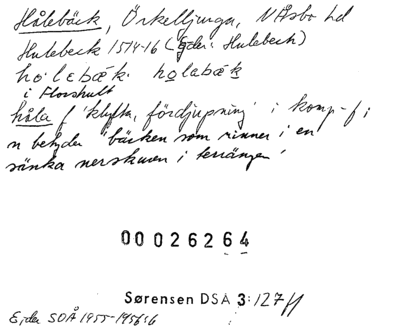 Hålebäck, Örkelljunga, NÅsbo hd
Hulebeck 1514-16 (Ejder: Hulebeck)
holebæk. holabæk
i Florshult
håla f 'klyfta, fördjupning' i komp-f i
n betyder 'bäcken som rinner i en
sänka nerskuren i terrängen'
00026264
Sørensen DSA 3:127ff
Ejder SOÅ 1955-1956:6